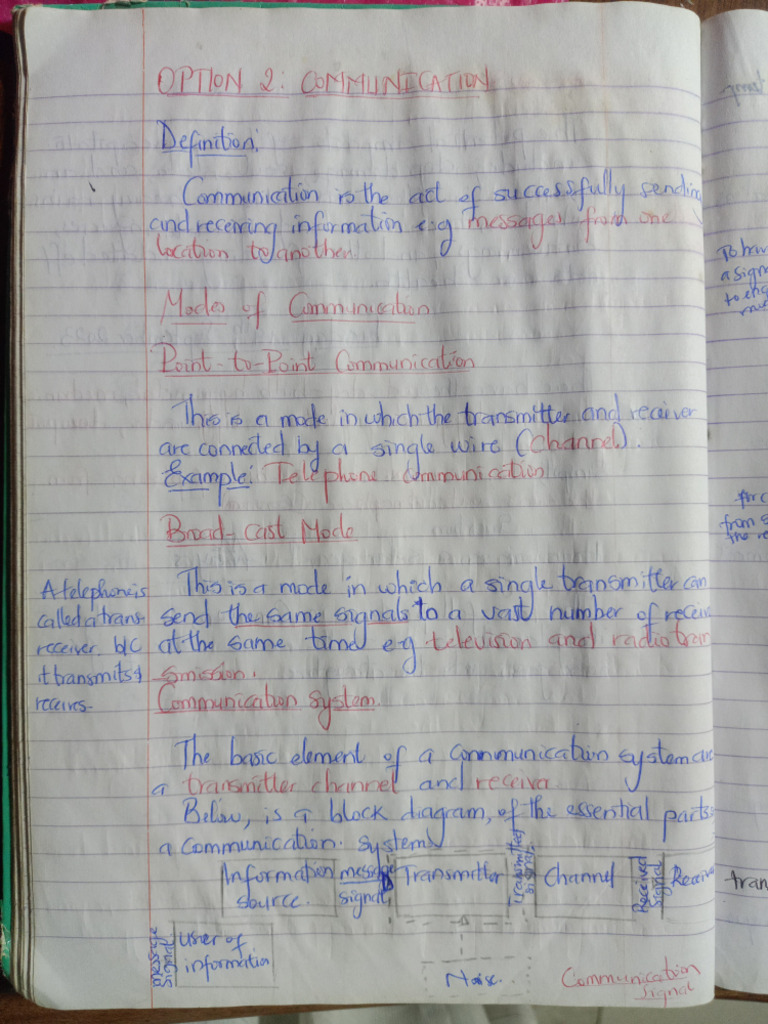 OPTION 2: COMMUNICATION
Definition:
Communication is the act of successfully sending
and receiving information e.g messages from one
location to another.
Modes of Communication
Point-to-Point Communication
This is a mode in which the transmitter and receiver
are connected by a single wire (channel).
Example: Telephone communication
Broad-Cast Mode
This is a mode in which a single transmitter can
send the same signals to a vast number of receiv
at the same time e.g television and radio tran
smission.
A telephone is
called a trans-
receiver b/c
it transmits &
receives.
Communication System.
The basic element of a Communication system are
a transmitter channel and receiver
Below, is a block diagram, of the essential parts
a communication system
Information
source.
message
signal
Transmitter
Transmitted
signal.
Channel
Received
Signal
Receive
message
signal.
User of
information
Noise.
Communication
signal
a sign
from s
the re
tran